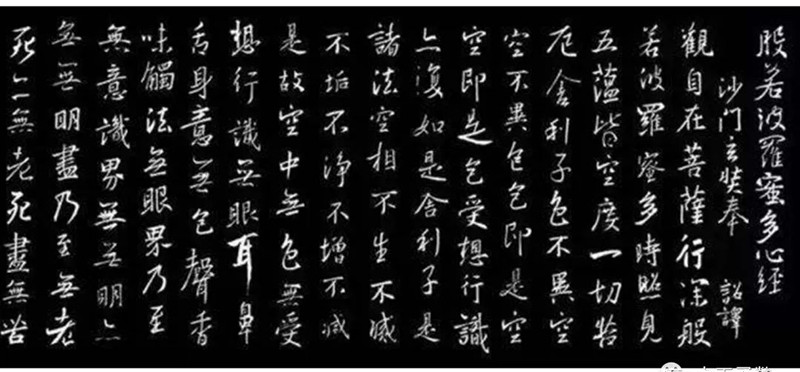 般若波羅蜜多心經
沙門玄奘奉 詔譯
觀自在菩薩行深般
若波羅蜜多時照見
五蘊皆空度一切苦
厄舍利子色不異空
空不異色色即是空
空即是色受想行識
亦復如是舍利子是
諸法空相不生不滅
不垢不淨不增不減
是故空中無色無受
想行識無眼耳鼻
舌身意無色聲香
味觸法無眼界乃至
無意識界無無明亦
無無明盡乃至無老
死亦無老死盡無苦